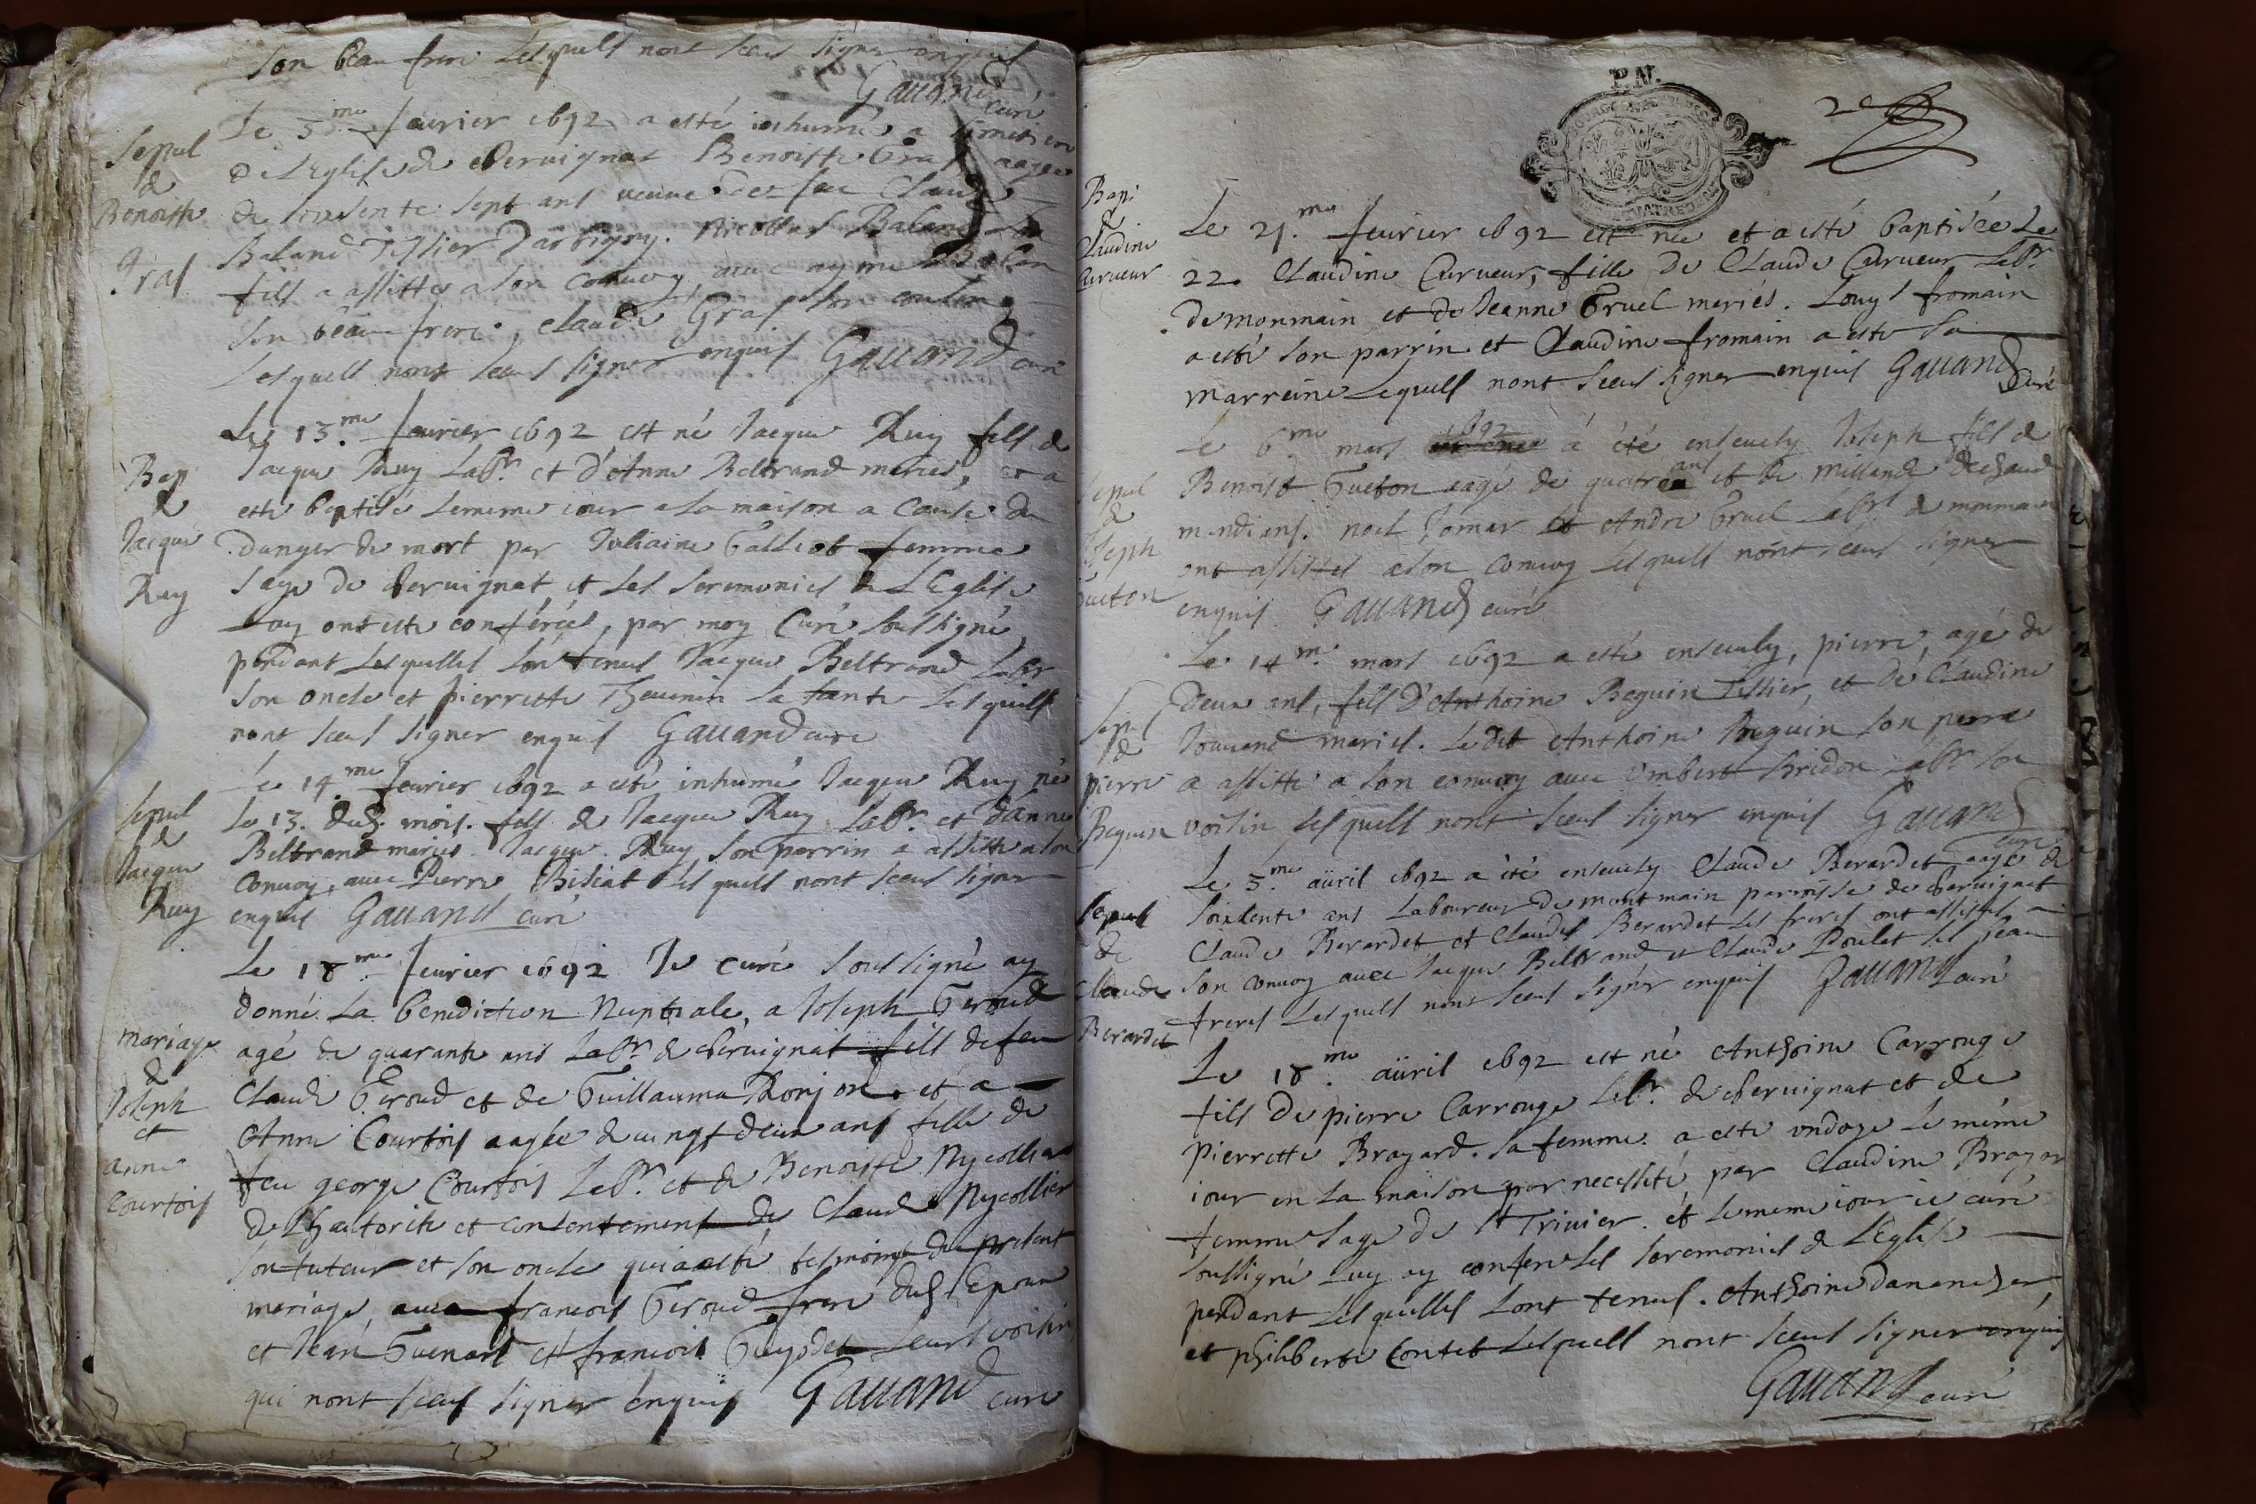 son beau frere lesquels nont sceus signer enquis
Gauand curé
Sepul
de
Benoiste
Gras
Le 5.me feurier 1692 a esté inhumée a
de L'Eglise de Cheruignat Benoiste Gras aagée
de soixente sept ans veuue de feu Claude
Baland Tissier D'arbigny. Nicollas Baland
fils a assisté a son conuoy auec
son beau frere, Claude Gras son cousin
Lesquels nont sceus signer enquis Gauand curé
Bap
de
Jacque
Ruy
Le 13.me feurier 1692 est né Jacque Ruy fils de
Jacque Ruy Labr. et d'Anne Beltrand meries, et a
esté baptisé le meme iour a la maison a cause du
danger de mort par Juliaine Galliot femme
sage de Cheruignat, et les seremonies de L'Eglise
Luy ont esté conférées, par moy Curé soussigné,
pendant Lesquelles L'on tenus Jacque Beltrand Labr
son oncle et pierrette Theuenin sa tante Lesquels
nont sceus signer enquis Gauand curé
Sepul
de
Jacque
Ruy
Le 14.me feurier 1692 a esté inhumé Jacque Ruy né
Le 13. dud. mois. fils de Jacque Ruy Labr. et d'anne
Beltrand meries. Jacque Ruy son parrin a assisté a son
conuoy, auec Pierre Bisiat Lesquels nont sceus signer
enquis Gauand curé
mariage
de
Joseph
et
anne
Courtois
Le 18.me feurier 1692 Je curé soussigné ay
donné La benediction Nuptiale, a Joseph Geroud
agé de quarante ans Labr. de cheruignat fils de feu
Claude Geroud et de Guillauma Ronjon. et a
Anne Courtois aagée de uingt deux ans fille de
feu george Courtois Labr. et de Benoiste Nycollier
de L'hautorité et consentement de Claude Nycollier
son tuteur et son oncle qui a esté tesmoing du present
meriage, auec francois Geroud frere dud. Epoux
et Jean Guenard et francois Guyddet Leurs voisin
qui nont sceus signer enquis Gauand curé
P.N.
2e
Bap.
de
Claudine
Curueur
Le 21.me feurier 1692 est née et a esté baptisée Le
22. Claudine Curueur, fille de Claude Curueur Labr.
de monmain et de Jeanne Gruel meriés. Louys fromain
a esté son parrin et Claudine fromain a esté sa
marreine Lequels nont sceus signer enquis Gauand Curé
Sepul
de
Joseph
Gueton
Le 6.me mars 1692 a été enseuely Joseph fils de
Benoist Gueton aagé de quatre ans et de
mendians. noel Jomar et Andre Gruel Labrs de monmain
ont assistes a son conuoy Lesquels nont sceus signer
enquis Gauand curé
Sepul
de
pierre
Beguin
Le 14.me mars 1692 a esté enseuely, pierre, agé de
deux ans, fils d'Anthoine Beguin Tissier, et de Claudine
Jouuend meries. Ledit Anthoine Beguin son pere
a assisté a son conuoy auec Umbert Bridon Labr. son
voisin Lesquels nont sceus signer enquis Gauand
curé
Sepul
de
Claude
Berardet
Le 5.me aüril 1692 a été enseuely Claude Berardet aagé de
soixente ans Laboureur de montmain parroisse de cheruignat
Claude Berardet et Claude Berardet ses freres ont assistes a
son conuoy auec Jacque Beltrand et Claude Poulet ses beau
freres Lesquels nont sceus signér enquis Gauand curé
Le 18.me aüril 1692 est né Anthoine Carrouge
fils de pierre Carrouge Labr. de cheruignat et de
Pierrette Brayard. sa femme. a esté ondoye Le même
iour en La maison par necessité par Claudine Brayar
femme sage de St Triuier. et Le meme iour ie curé
soussigné Luy ay confere Les seremonies de L'Eglise
pendant Lesquelles Lont tenus. Anthoine
et philiberte Contet Lesquels nont sceus signer enquis
Gauand curé